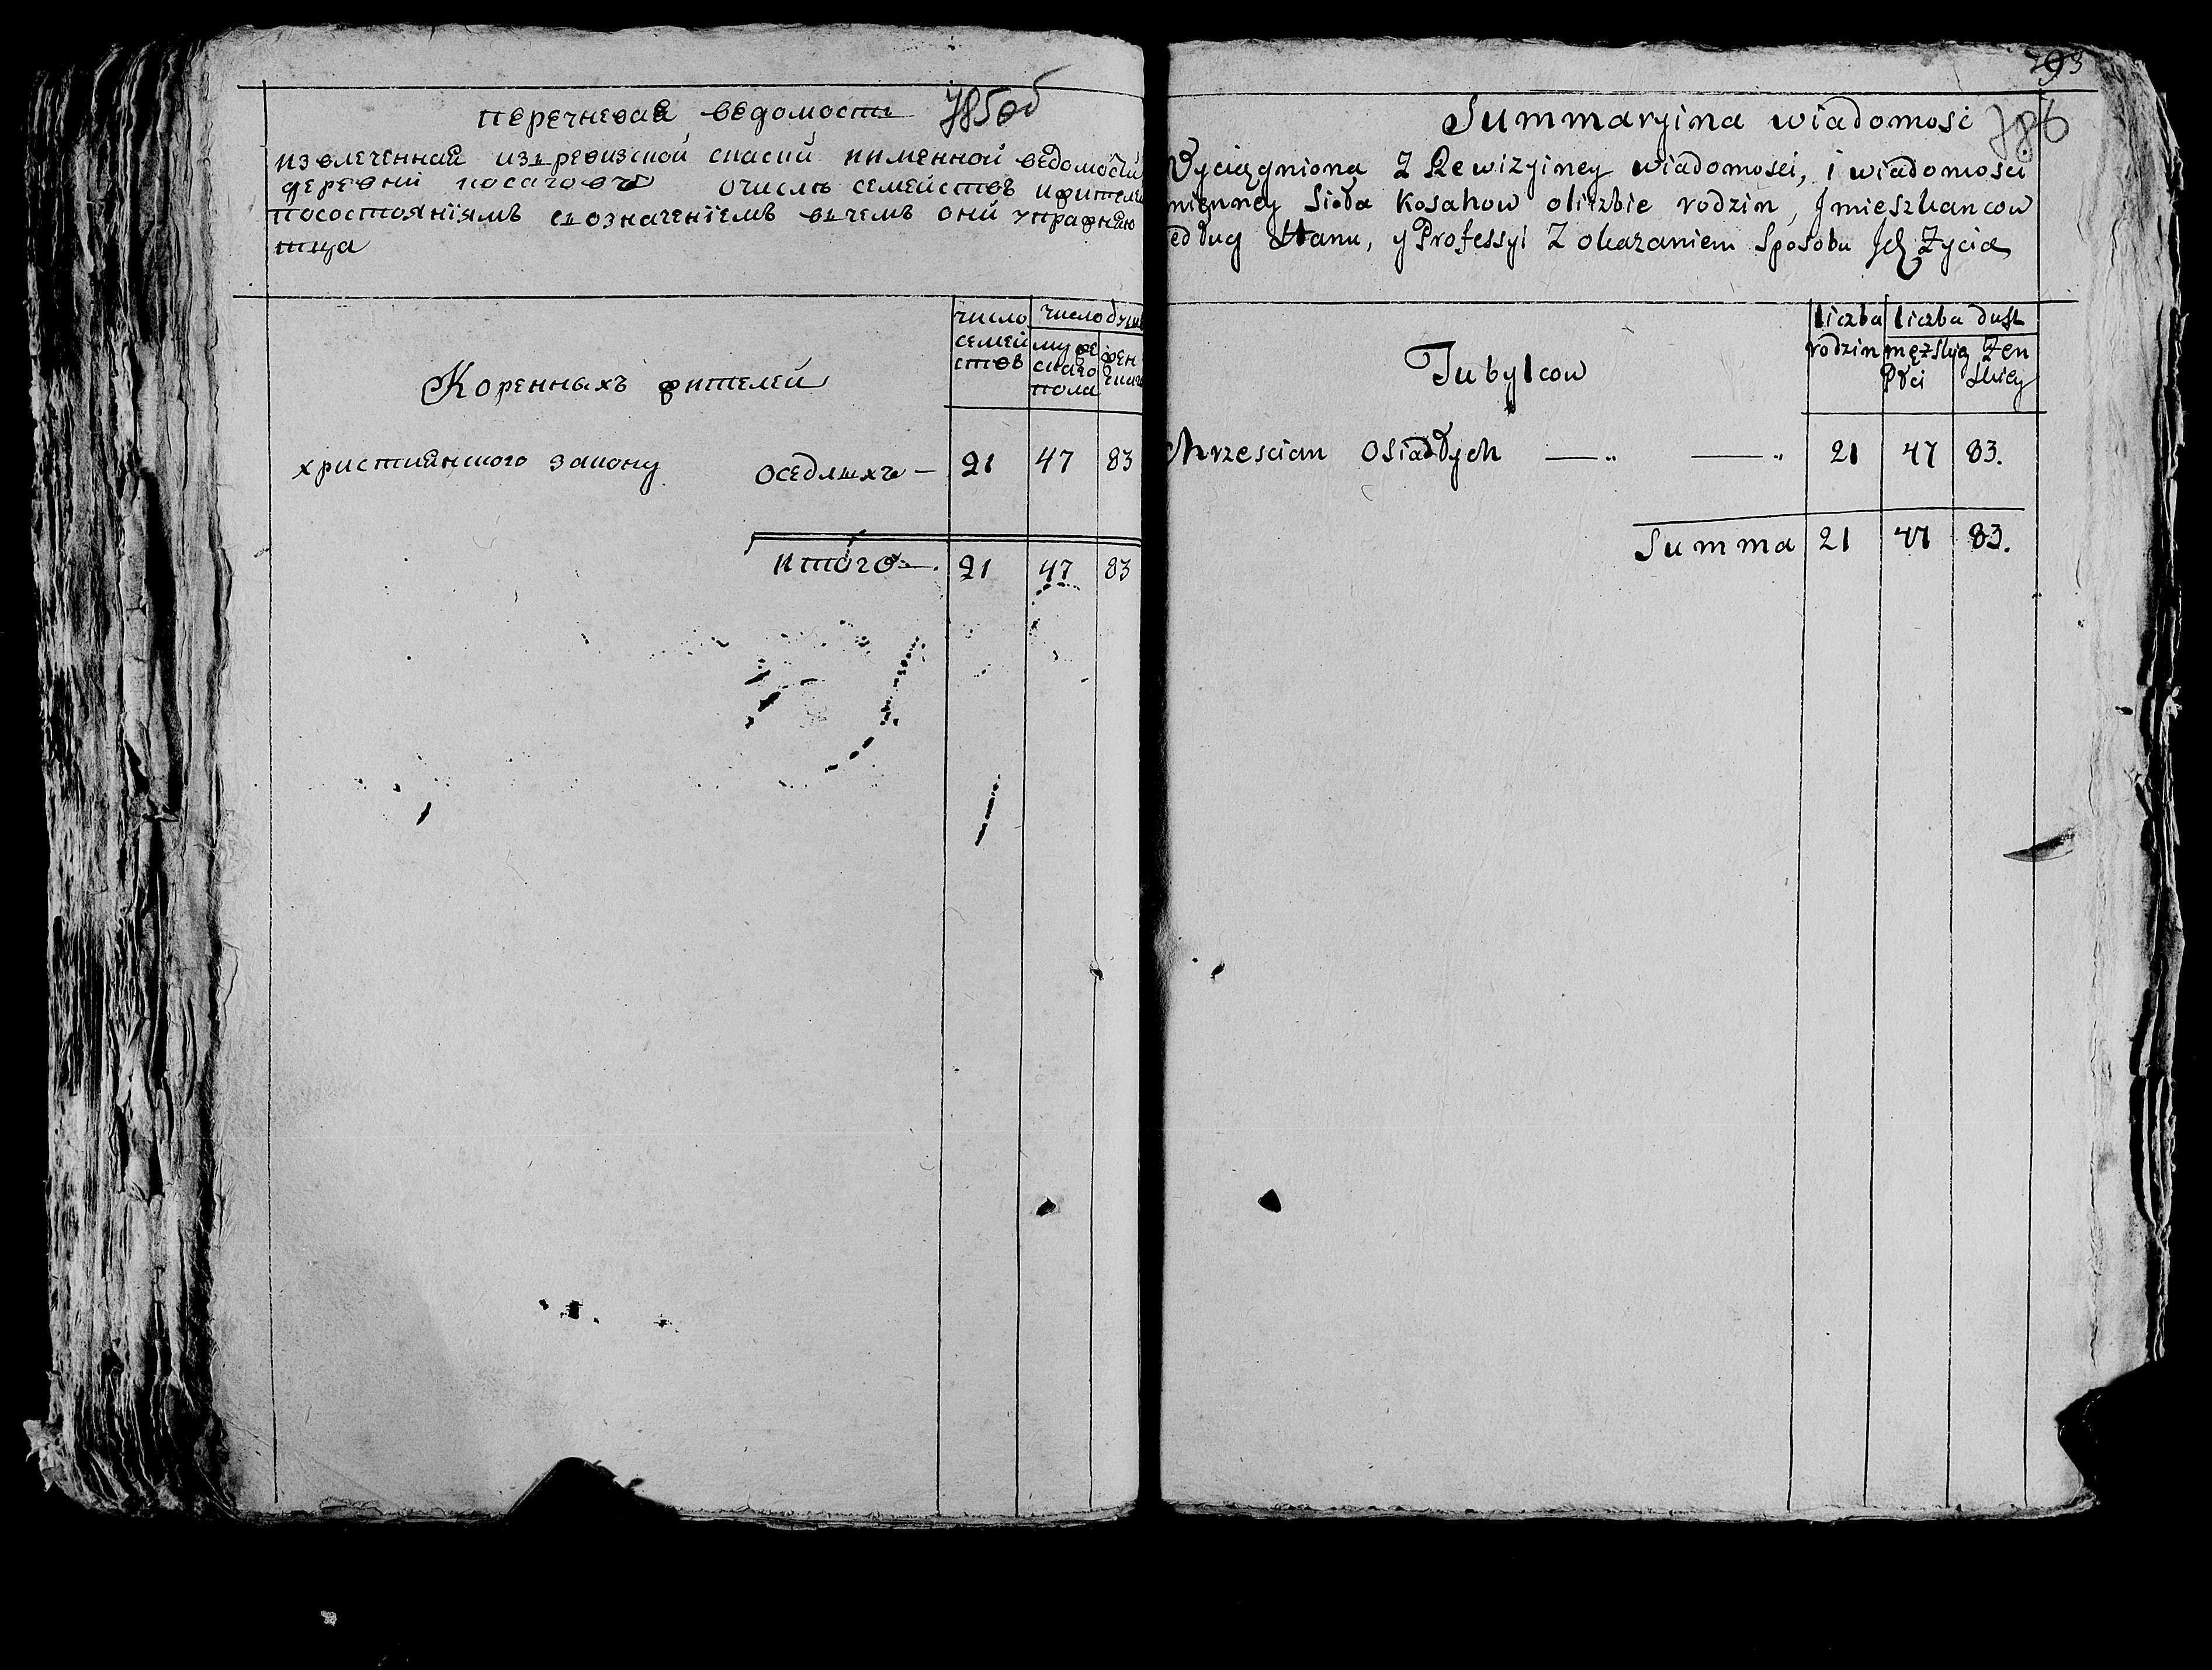 перечневая ведомость 785об
извлеченная изъ ревизской скаски иименной ведомости
деревни косаговъ очисле семействъ ижителей
посостояніямъ съозначеніемъ вчемъ они упражняю
тца
число семей ствъ
число душъ
мужескаго пола
жен скаго
Коренныхъ жителей
християнского закону оседлыхъ — 21 47 83
итого — 21 47 83
793
Summaryina wiadomosc 786
Wyciągniona z Rewizyiney wiadomosci, i wiadomosci
mienney Sioła Kosahow oliczbie rodzin, Jmieszkancow
edług Stanu, y Professyi z okazaniem Sposobu Jch Zycia
liczba rodzin
liczba dusz
męzskiey płci
Zen skiey
Tubylcow
chrzescian Osiadłych — „ — „ 21 47 83.
Summa 21 47 83.